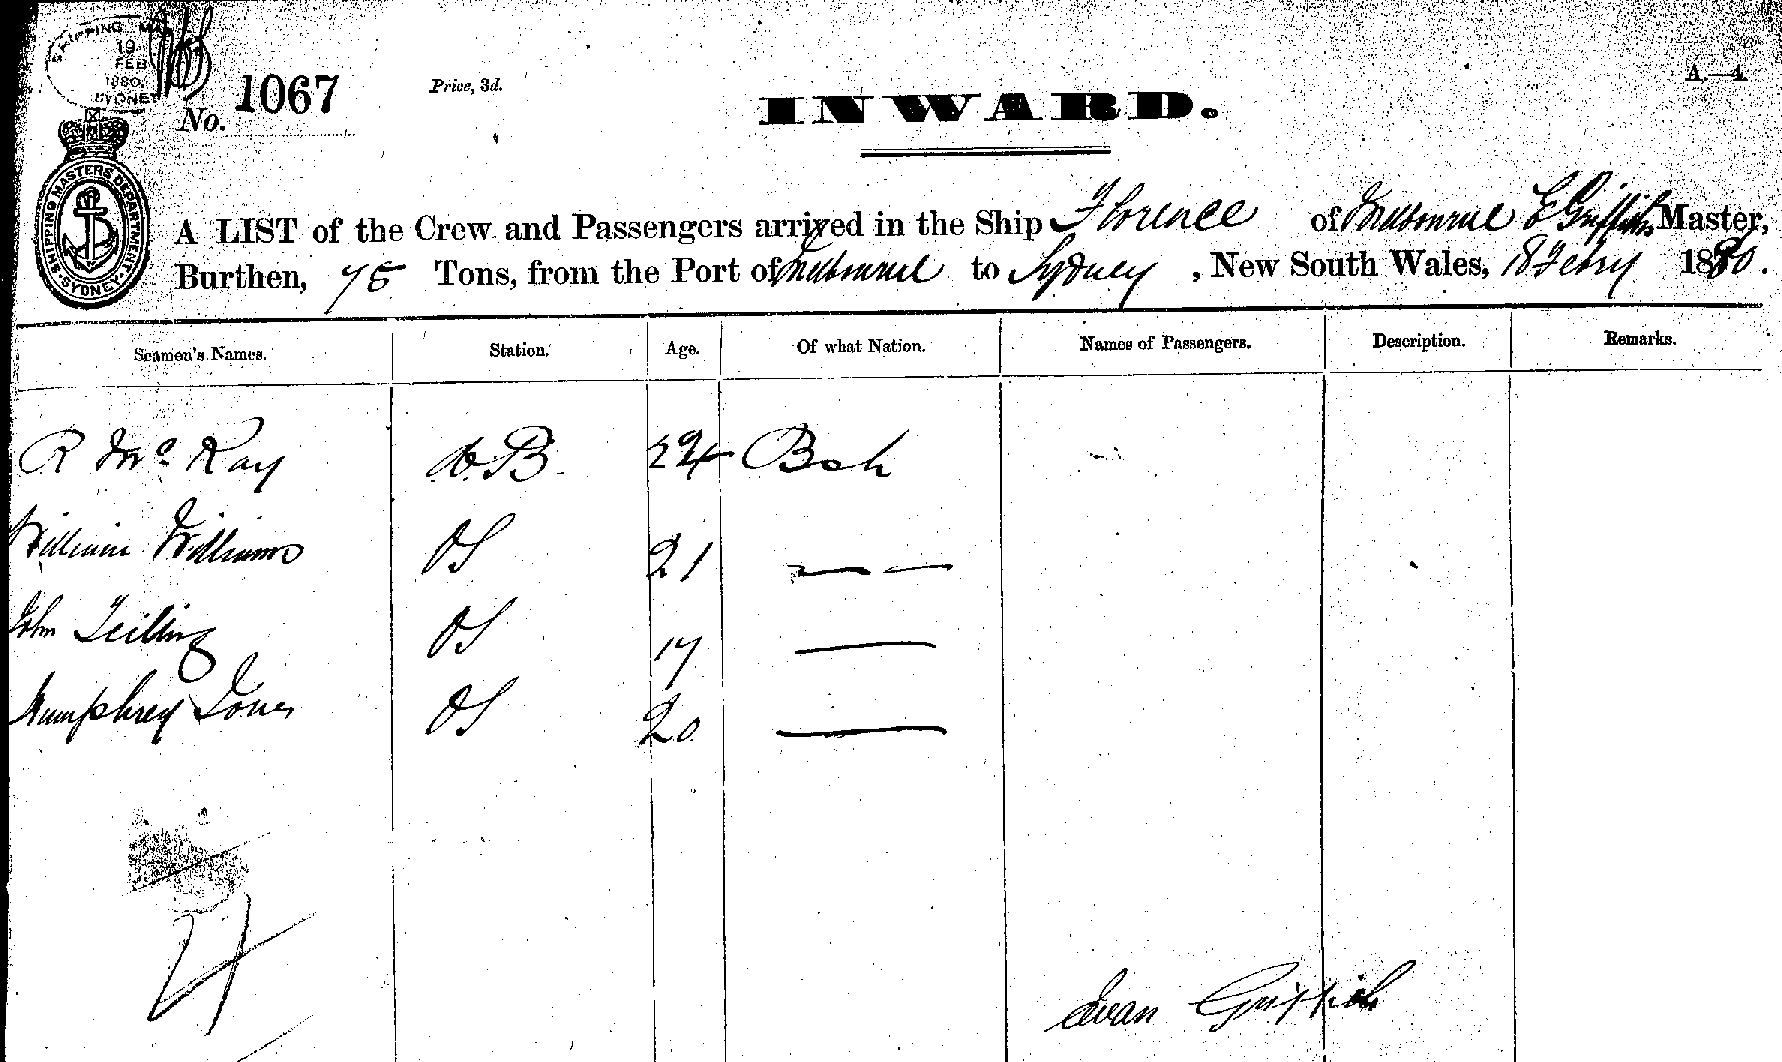 SHIPPING MA
19
FEB
1880
SYDNEY
No. 1067
Price, 3d.
A—4
INWARD.
SHIPPING MASTERS DEPARTMENT. SYDNEY
A LIST of the Crew and Passengers arrived in the Ship Florence of Melbourne E Griffiths Master,
Burthen, 75 Tons, from the Port of Melbourne to Sydney, New South Wales, 18 Febry 1880.
Seamen's Names. Station. Age. Of what Nation. Names of Passengers. Description. Remarks.
R McKay AB 24 Bsh
William Williams OS 21 — —
John OS 17 —
Humphrey Jones OS 20 —
4
Evan Griffith